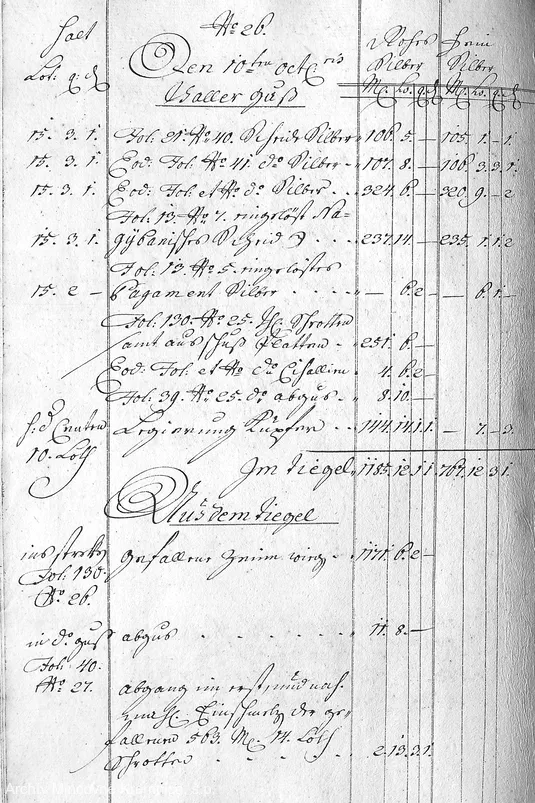 No: 26.
halt
Lot: q: d
Den 10ten octbris
Thaller guß
Rohes Silber
Mc. Lo. q. d
Fein Silber
Mc. Lo. q. d
15. 3. 1. Fol: 21. No 40. Scheide Silber 106. 5. — 105. 1. — 1.
15. 3. 1. Eod: Fol: No 41. do Silber 107. 8. — 106. 3. 3. 1.
15. 3. 1. Eod: Fol: et No do Silber 324. 6. — 320. 9. — 2
Fol: 13. No 7. eingelöst Na=
15. 3. 1. gybanisches Scheid 237. 14. — 235. 1. 1. 2
Fol: 13. No 5. eingelöstes
15. 2 — Pagament Silber — 6. 2 — — 6. 1. —
Fol: 130. No 25. Schrotten
samt ausschuß Platten 251. 6. —
Eod: Fol: et No do Cisallien 4. 6. 2
Fol: 39. No 25. do abgus 8. 10. —
10. Loth
Legierung Kupfer 144. 14. 1. 1. — 7. — 3.
Im Tiegel 1185. 12. 1. 1. 767. 12. 3. 1.
Aus dem Tiegel
ins streken
Fol: 130.
No 26.
gefallene Zein wieg 1171. 6. 2 —
in do guß
Fol: 40.
No 27.
abgus 11. 8. —
abgang im erst, und nach.
Einschmelz der ge=
fallenen 563. Mc. 14. Loth
Schrotten 2. 13. 3. 1.